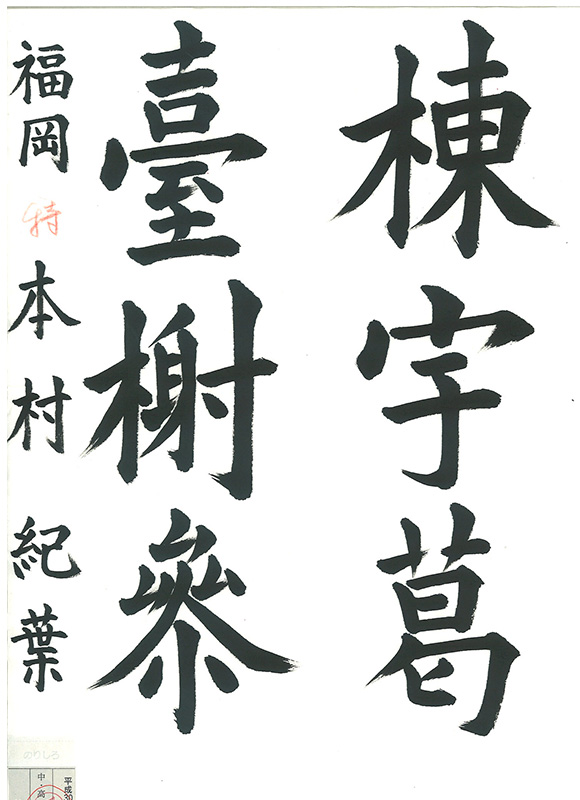 棟宇葛
臺榭参
福岡 特 本村 紀葉
のりしろ
中・高
平成30